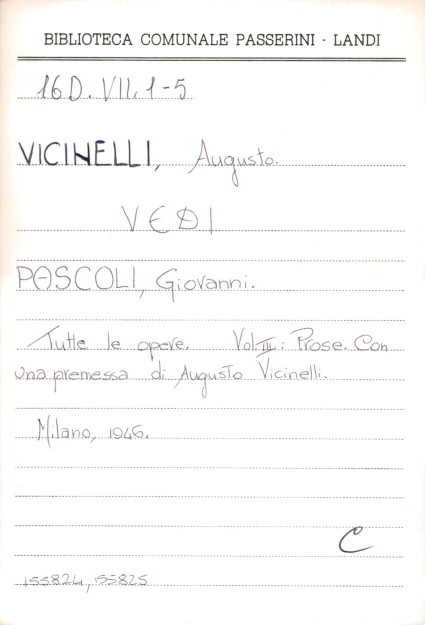 BIBLIOTECA COMUNALE PASSERINI - LANDI
16D. VII. 1-5
VICINELLI, Augusto.
VEDI
POSCOLI, Giovanni.
Tutte le opere. Vol III: Prose. Con
una premessa di Augusto Vicinelli.
Milano, 1946.
C
155824, 155825